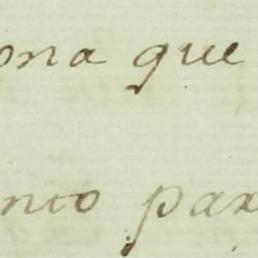 ona que
nto par